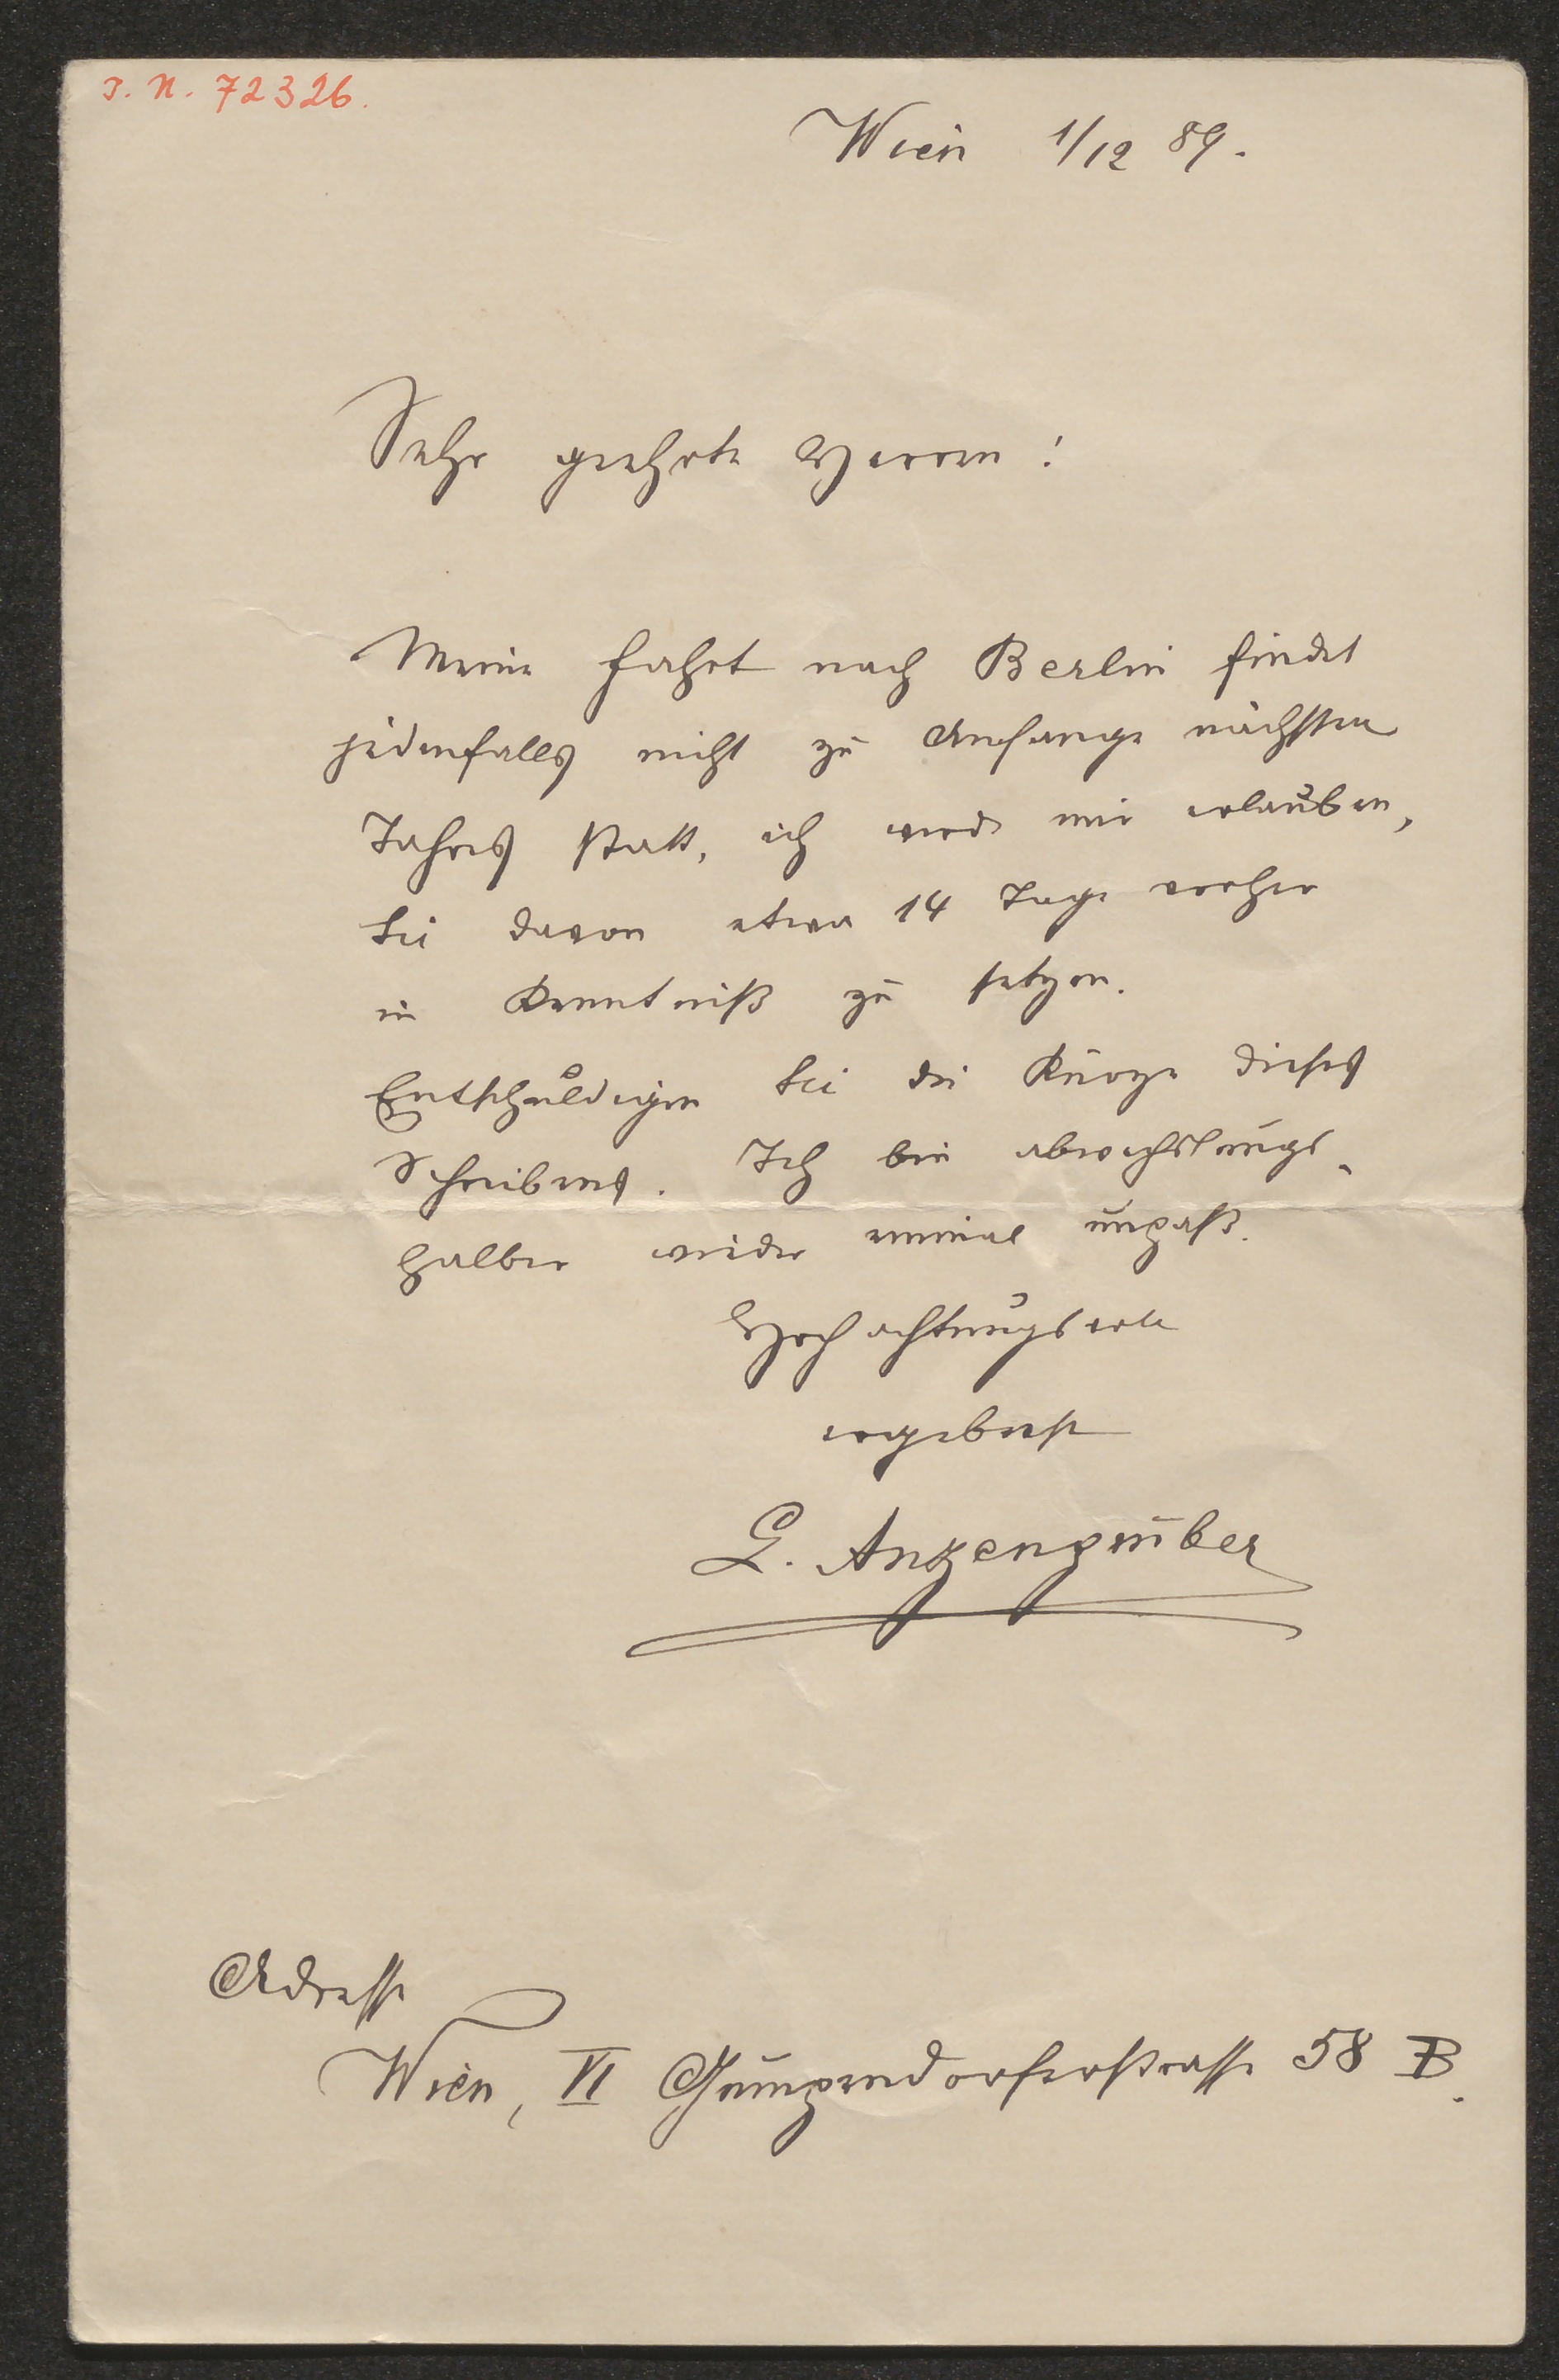 J. N. 72326.
Wien 1/12 89.
Sehr geehrte Herren!
Meine Fahrt nach Berlin findet
jedenfalls nicht zu Anfange nächsten
Jahres statt, ich werde mir erlauben,
Sie davon etwa 14 Tage vorher
in Kenntniß zu setzen.
Entschuldigen Sie die Kürze dieses
Schreibens. Ich bin abwechslungs-
halber wieder einmal unpaß.
Hochachtungsvoll
ergebenst
L. Anzengruber
Adresse
Wien, VI Gumpendorferstrasse 58 B.